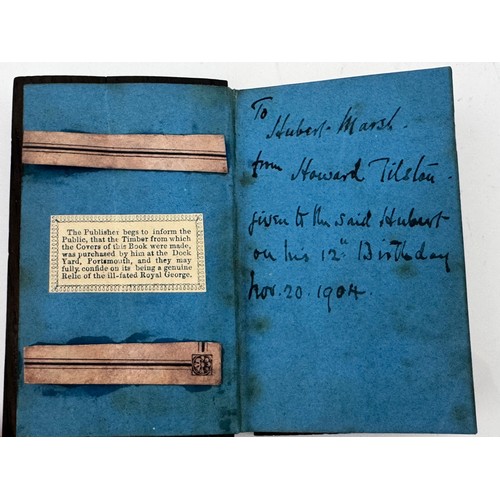 The Publisher begs to inform the
Public, that the Timber from which
the Covers of this Book were made,
was purchased by him at the Dock
Yard, Portsmouth, and they may
fully confide on its being a genuine
Relic of the ill-fated Royal George.
To
Hubert Marsh.
from Howard Tilston.
given to the said Hubert
on his 12th Birthday
Nov. 20. 1904.